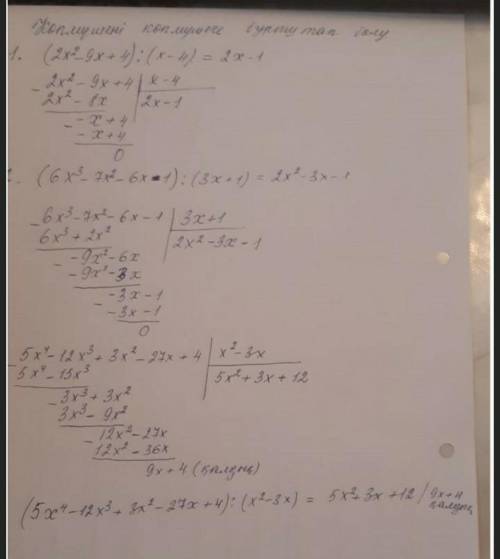 Көпмүшені көпмүшеге бұрыштап бөлу
1. (2x²-9x+4):(x-4) = 2x-1
- 2x² - 9x + 4 | x-4
2x² - 8x | 2x-1
- -x+4
-x+4
0
2. (6x³-7x²-6x-1):(3x+1) = 2x²-3x-1
- 6x³-7x²-6x-1 | 3x+1
6x³+2x² | 2x²-3x-1
- -9x²-6x
-9x²-3x
- -3x-1
-3x-1
0
- 5x⁴-12x³+3x²-27x+4 | x²-3x
5x⁴-15x³ | 5x²+3x+12
- 3x³+3x²
3x³-9x²
- 12x²-27x
12x²-36x
9x+4 (қалдық)
(5x⁴-12x³+3x²-27x+4):(x²-3x) = 5x²+3x+12 / 9x+4
қалдық